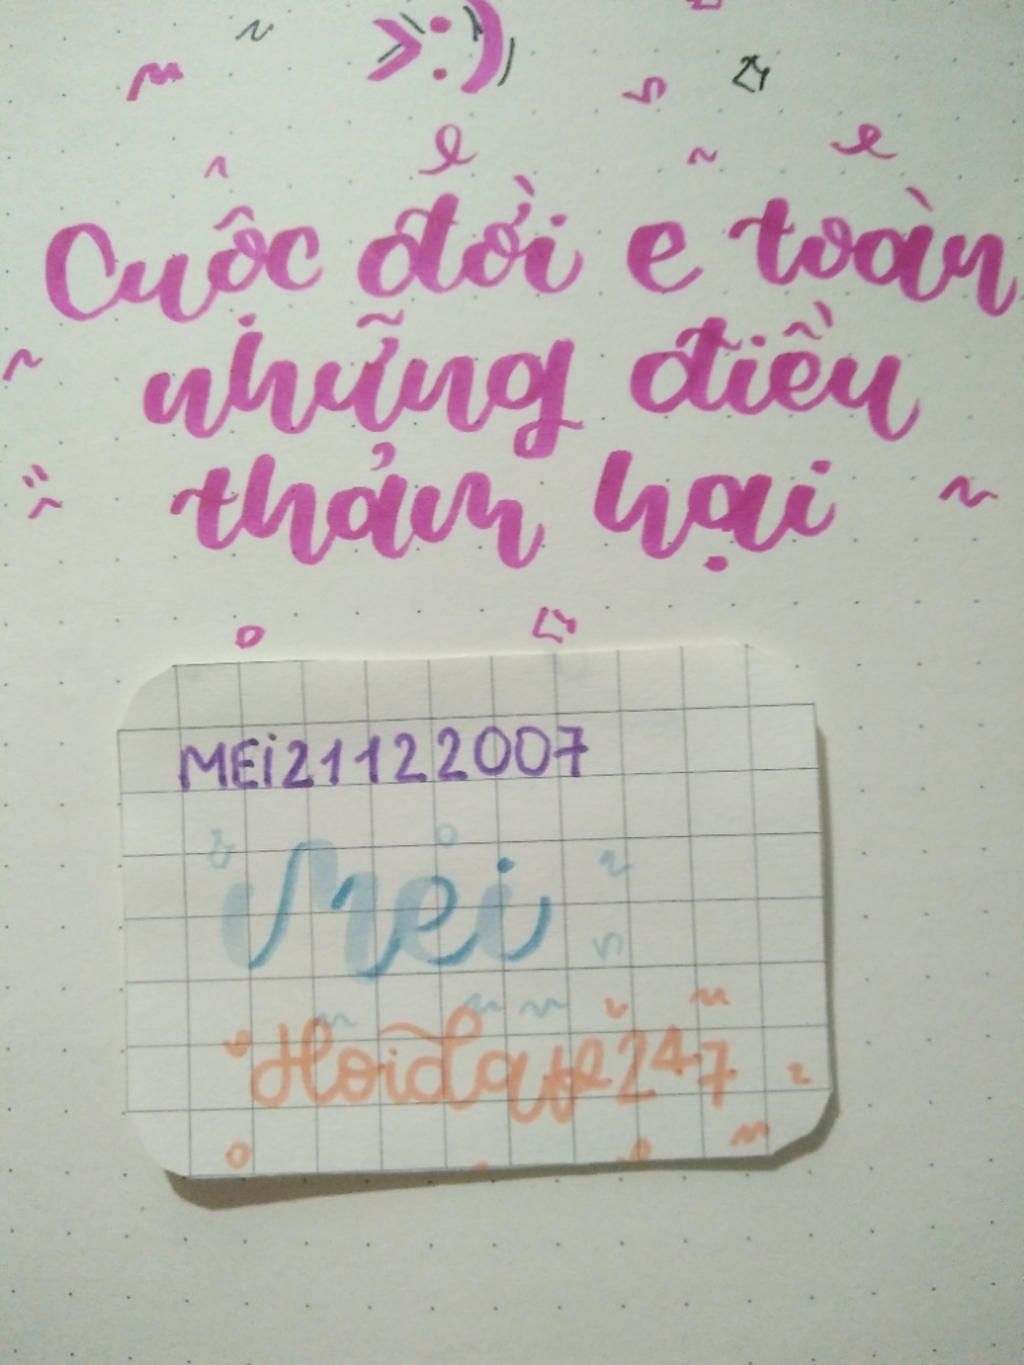 >:)
Cuộc đời e toàn
những điều
thảm hại
MEi21122007
Mei
HoiDap247